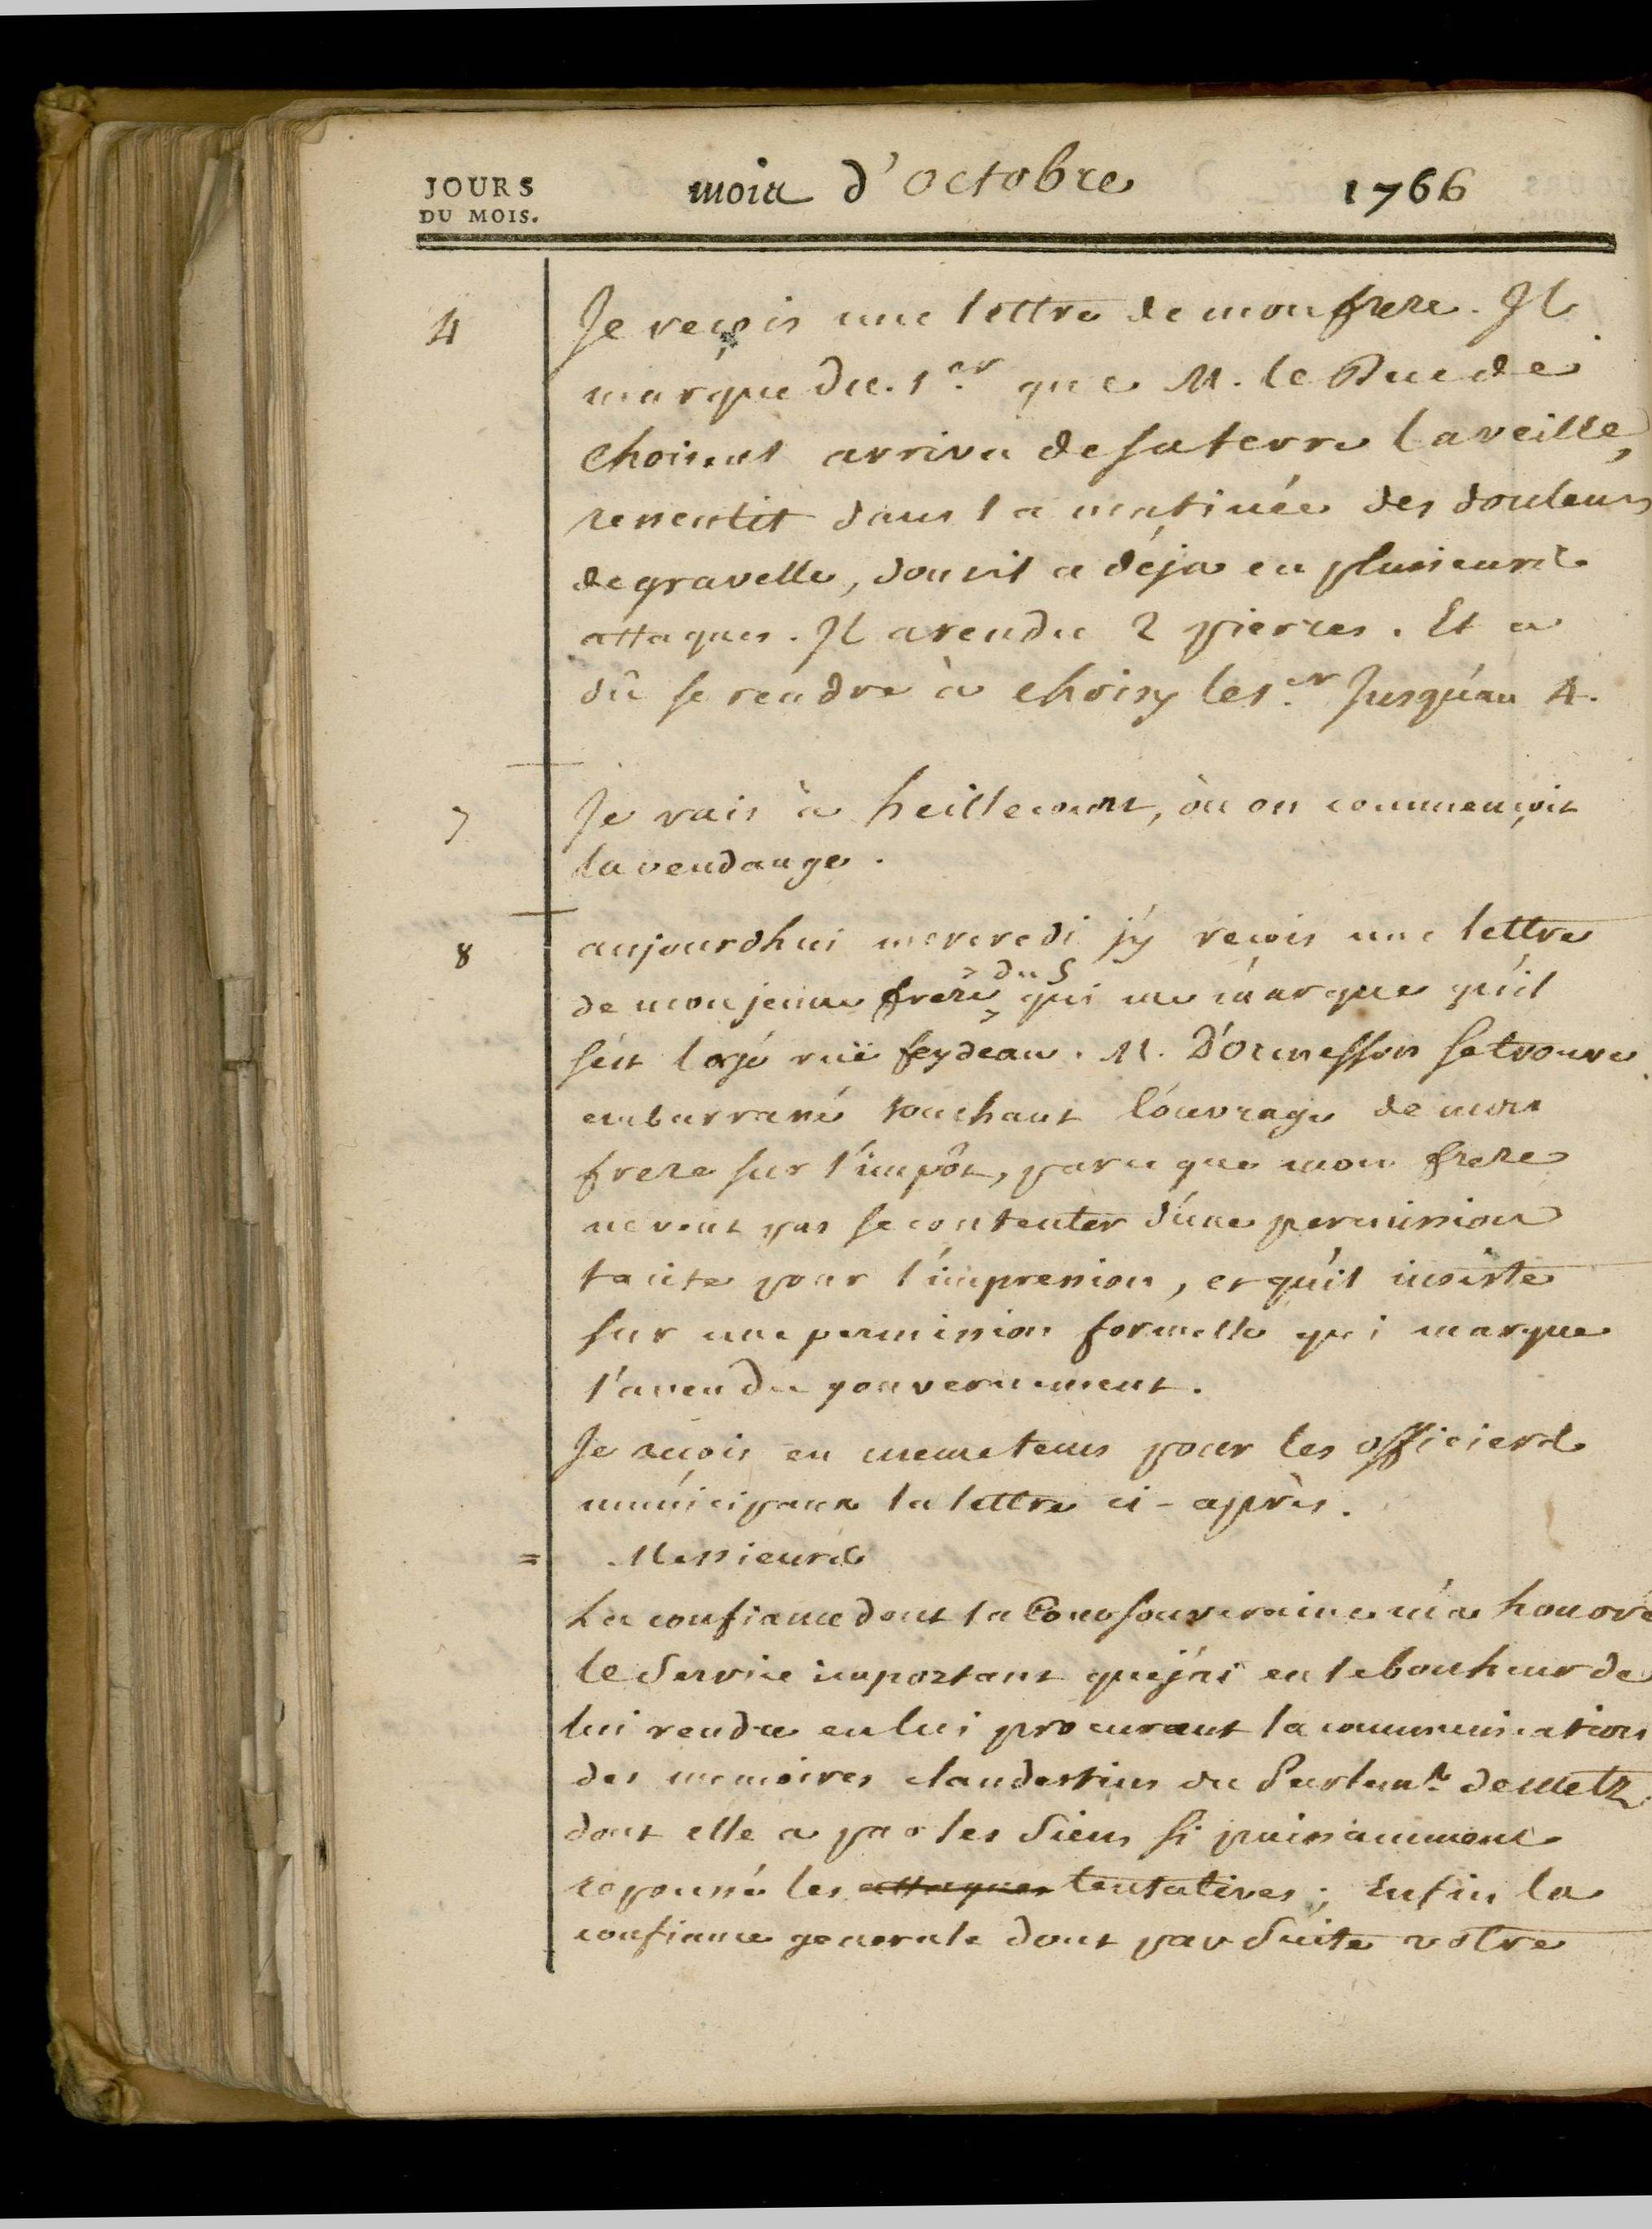 JOURS
DU MOIS.
mois d'octobre 1766
4 Je reçois une lettre de mon frere. Il
marque du 1.er que M. le Duc de
Choiseul arriva de sa terre la veille,
ressentit dans la matinée des douleurs
de gravelle, dont il a déja eu plusieurs
attaques. Il a rendu 2 pierres. Et a
dû se rendre à choisy le 1.er Jusqu'au 4.
7 Je vais à heillecourt, où on commençoit
la vendange.
8 aujourdhui mercredi j'y reçois une lettre
de mon jeune frere du 5 qui me marque qu'il
s'est logé ruë feydeau. M. D'Ormesson se trouve
embarrassé touchant l'ouvrage de mon
frere sur l'impôt, parce que mon frere
ne veut pas se contenter d'une permission
tacite pour l'impression, et qu'il insiste
sur une permission formelle qui marque
l'aveu du gouvernement.
Je reçois en meme tems pour les officiers
municipaux la lettre ci-après.
= Messieurs
La confiance dont la Cour souveraine m'a honoré
le Service important que j'ai eu le bonheur de
lui rendre en lui procurant la communication
des memoires clandestins du Parlem.t de Metz
dont elle a par les Siens si puissamment
repoussé les attaques tentatives; Enfin la
confiance generale dont par Suite votre